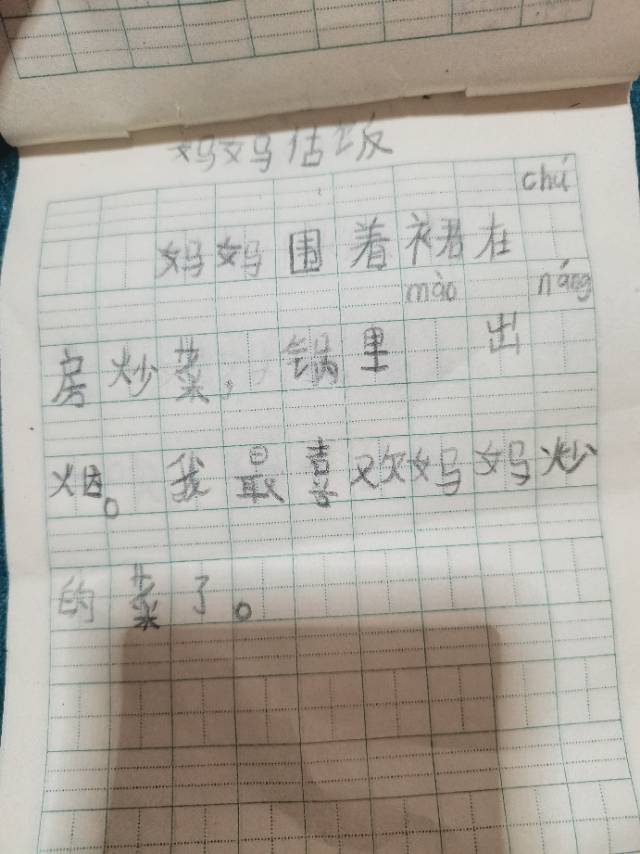 妈妈估饭
chú
妈妈围着裙在
mào náng
房炒菜，锅里 出
烟。我最喜欢妈妈炒
的菜了。